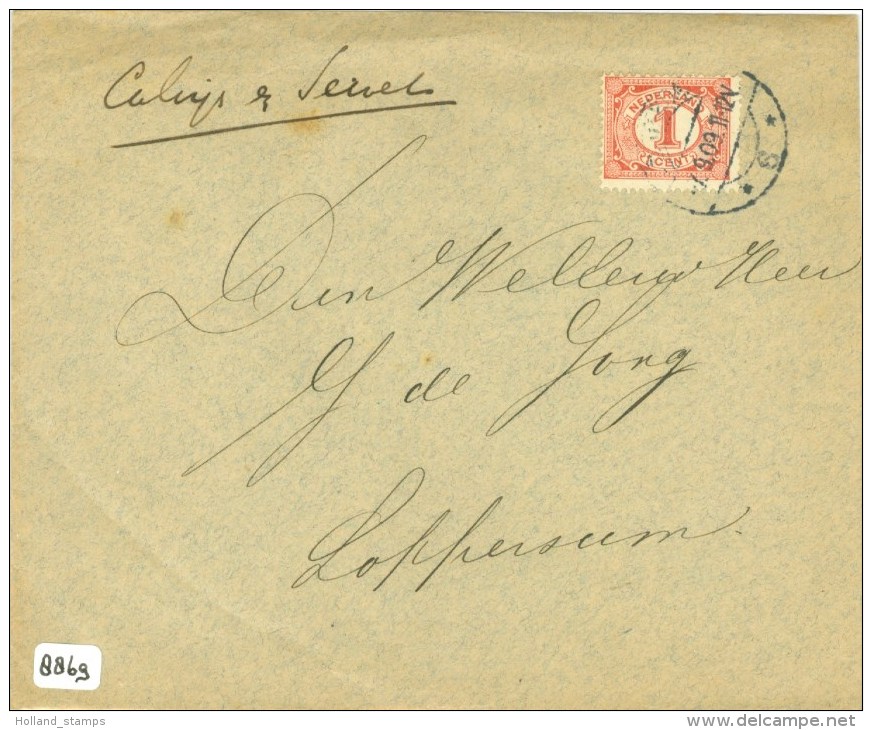 Calvijs & Servet
NEDERLAND
1
CENT
9.09 11-12V
8
Den Welleerw Heer
G de Jong
Loppersum
8869
Holland_stamps
www.delcampe.net